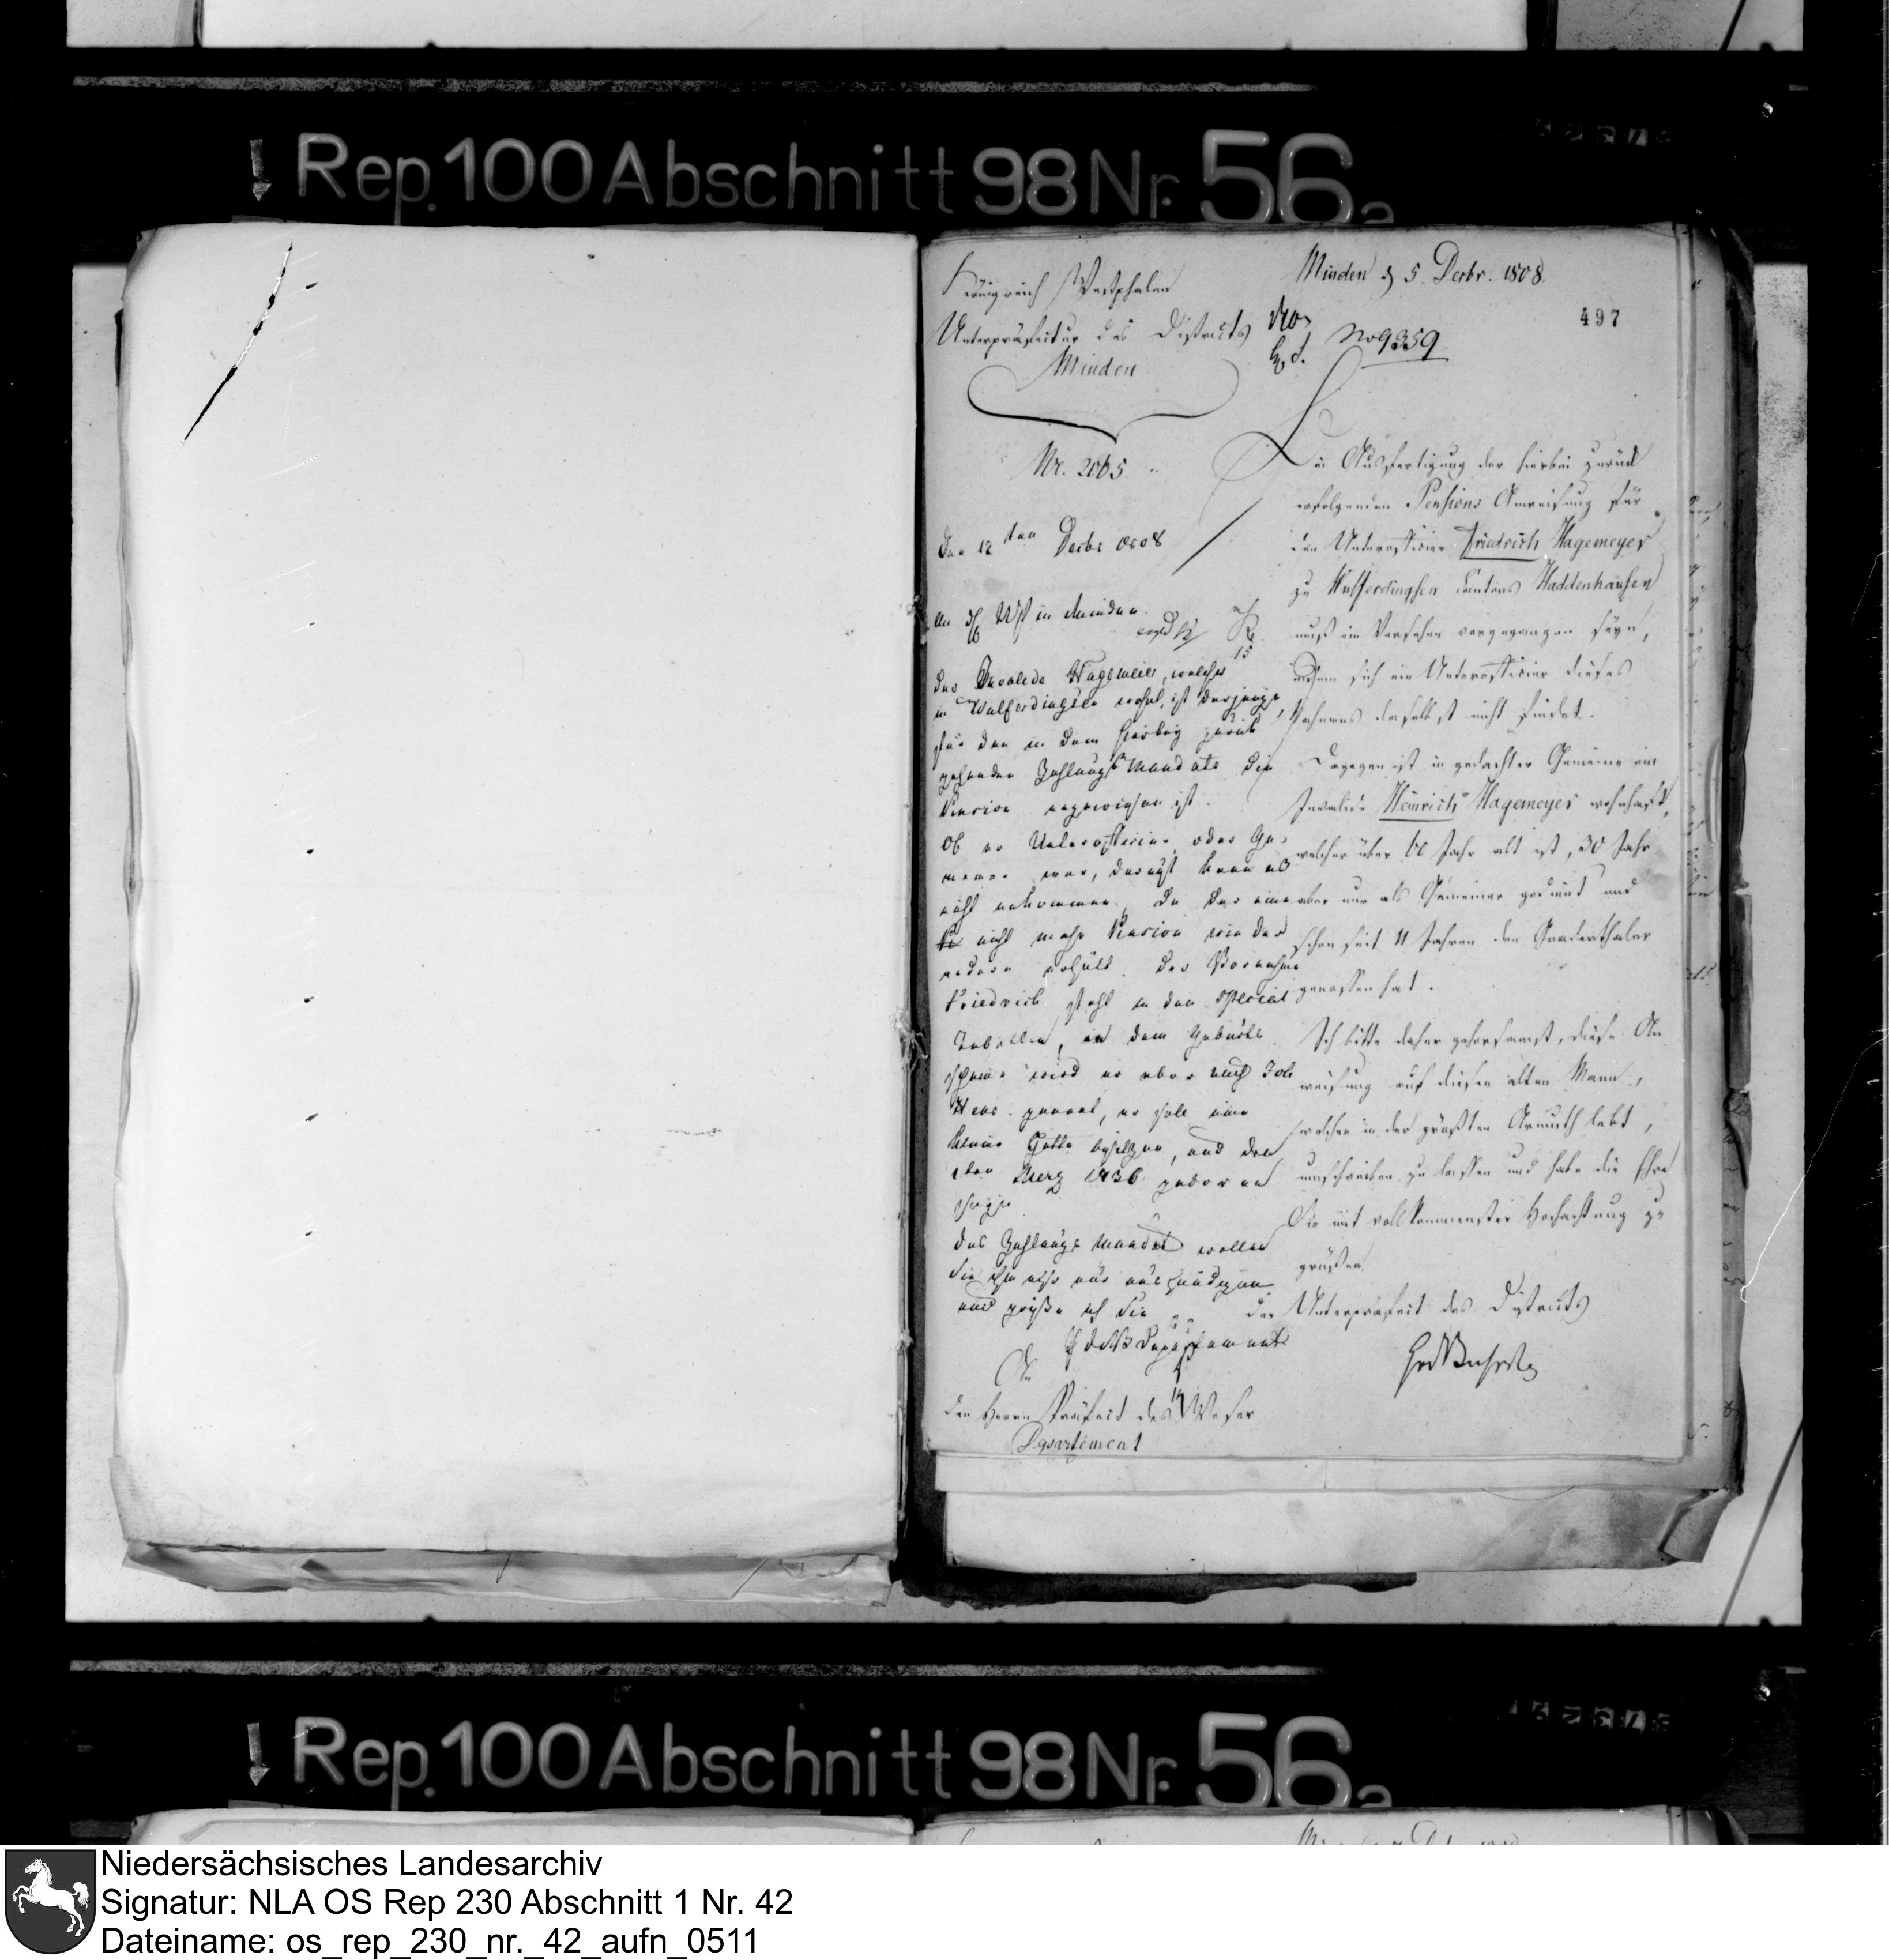 Rep. 100 Abschnitt 98 Nr. 56a
Königreich Westphalen
Unterpräfectur des Districts
Minden
Nr. 2065
Minden d 5 Decbr. 1808
497
No 9359
Bei Ausfertigung der hierbei zurück
erfolgenden Pensions Anweisung für
den Unterofficier Friedrich Hagemeyer
zu Wulferdingsen Cantons Haddenhausen
muß ein Versehen vorgegangen seyn,
indem sich ein Unterofficier dieses
Nahmens daselbst nicht findet.
Dagegen ist in gedachter Gemeine ein
Invalide Heinrich Hagemeyer wohnhaft,
welcher über 60 Jahr alt ist, 30 Jahr
aber nur als Gemeiner gedient und
schon seit 11 Jahren den Gnadenthaler
genossen hat.
Ich bitte daher gehorsamst, diese An
weisung auf diesen alten Mann,
welcher in der größten Armuth lebt,
umschreiben zu lassen und habe die Ehre
Sie mit vollkommenster Hochachtung zu
grüßen
Der Unterpräfect des Districts
An
den Herrn Präfect des Weser
Departement
Den 12ten Decbr 1808
An in Minden
Der Invalide Hagemeier, welcher
in Wulferdingsen wohnt, ist derjenige,
für den in dem hierbey zurück
gehenden Zahlungs Mandate die
Pension angewiesen ist.
Ob er Unterofficier oder Ge
meiner war, darauf kann es
nicht ankommen, da der eine
nicht mehr Pension wie der
andere erhält. Der Vornahme
Friedrich steht in den Special
Tabellen, in dem Geburts
scheine wird er aber auch Joh
Henr. genannt, er soll eine
kleine besitzen, und den
Merz 1736 geboren
seyn
Das Zahlungs Mandat wollen
Sie ihm also nur aushändigen
und grüße ich Sie
Rep. 100 Abschnitt 98 Nr. 56a
Niedersächsisches Landesarchiv
Signatur: NLA OS Rep 230 Abschnitt 1 Nr. 42
Dateiname: os_rep_230_nr._42_aufn_0511